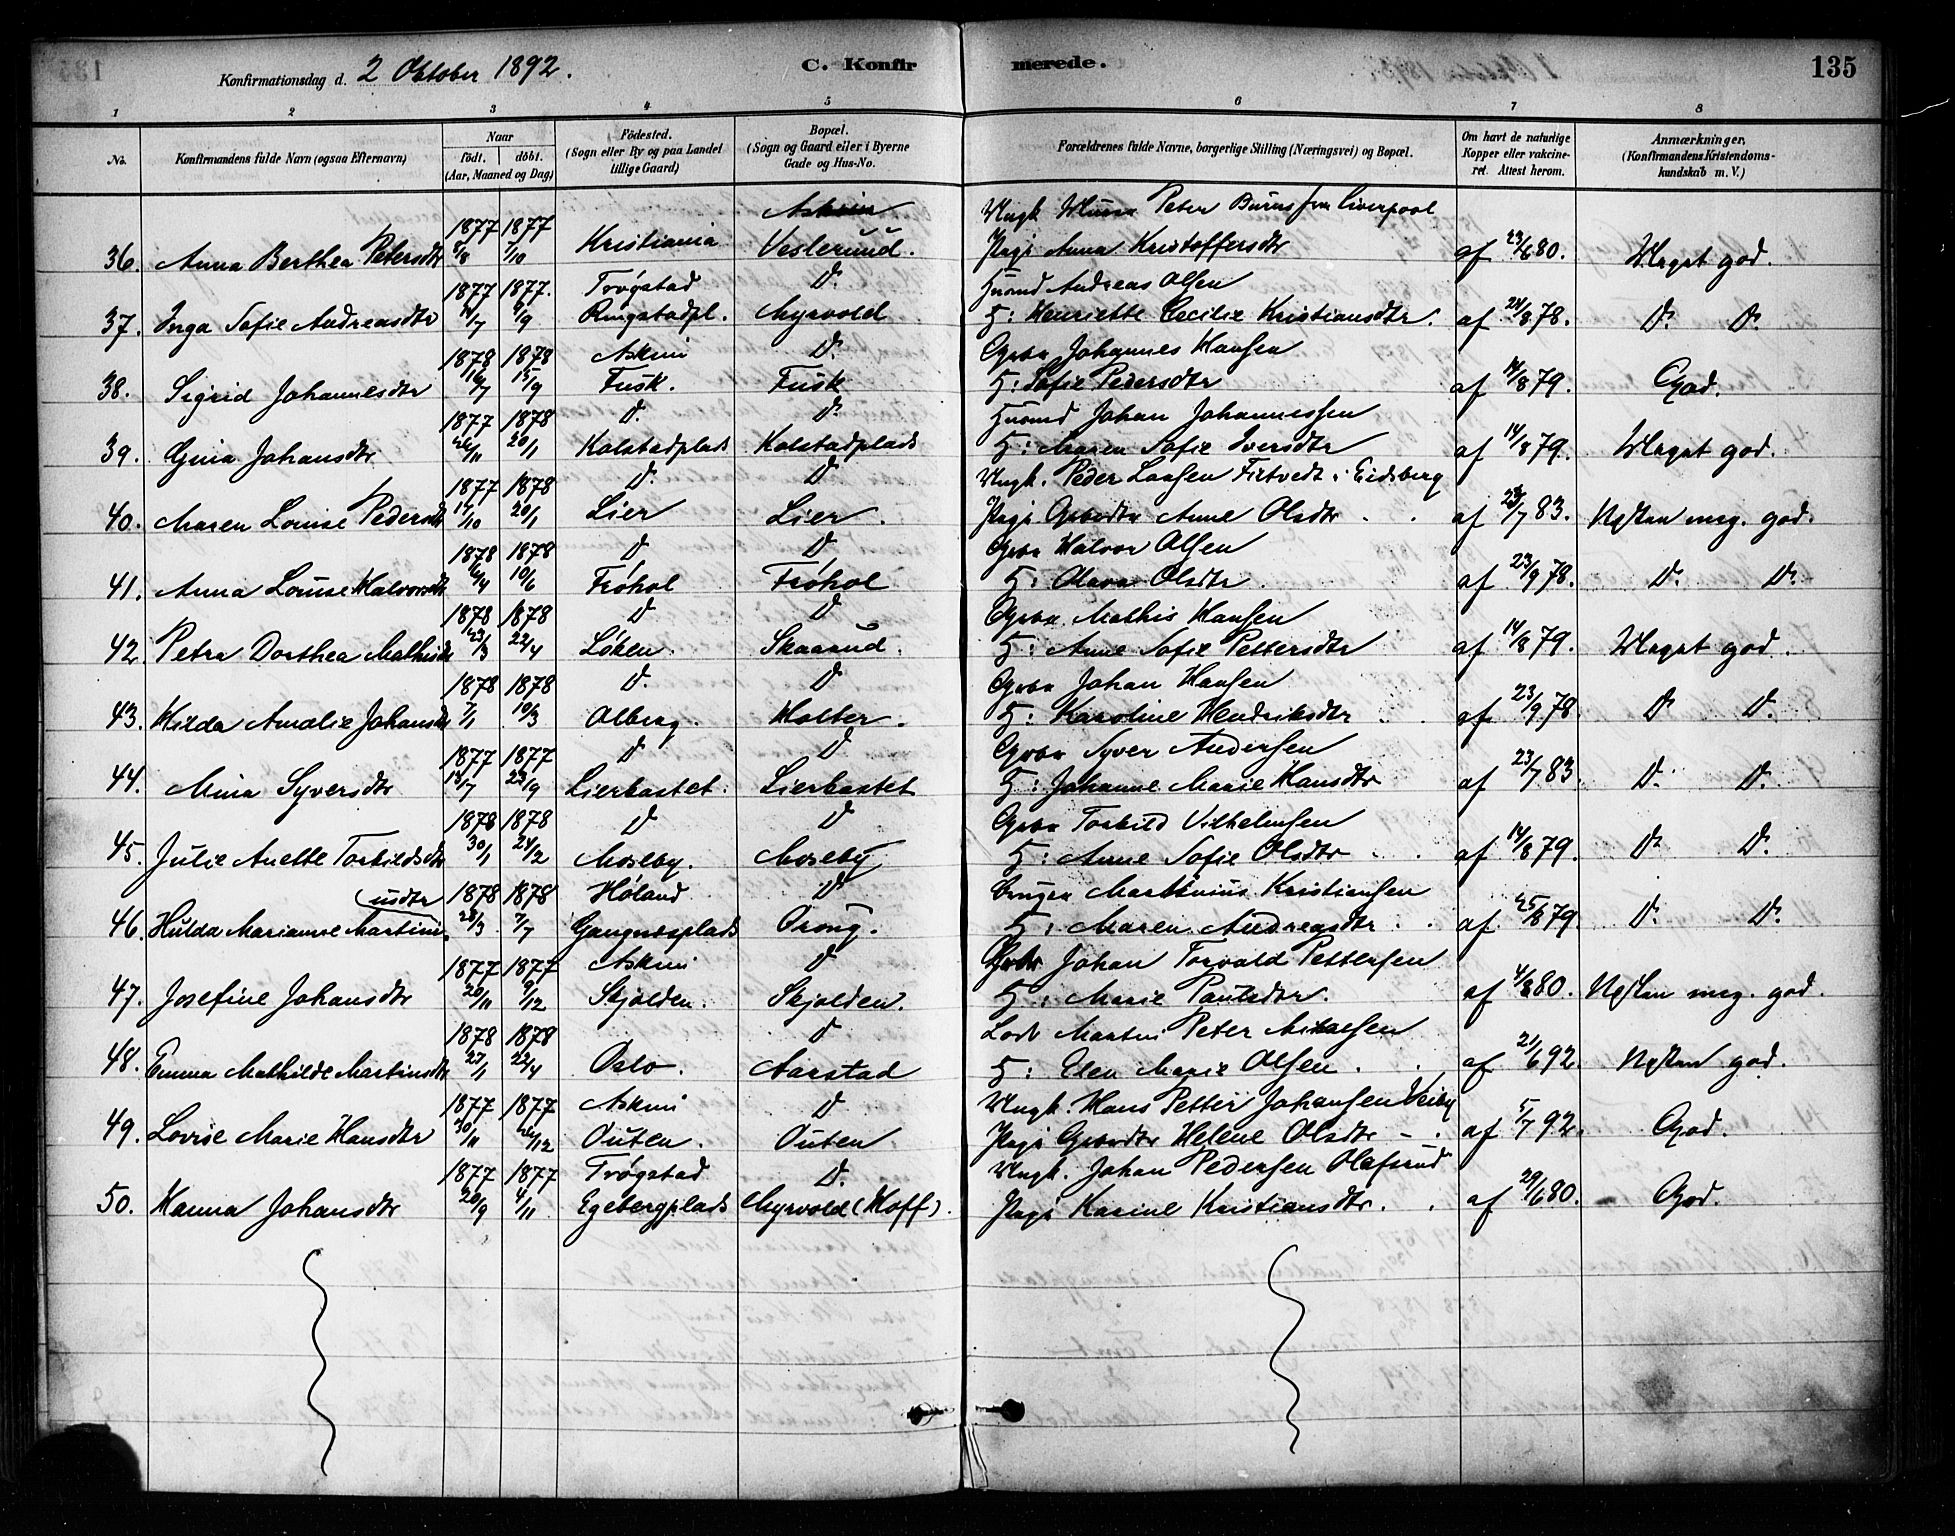 135
Konfirmationsdag d. 2 Oktober 1892. C. Konfirmerede.
1 2 3 4 5 6 7 8
No. Konfirmandens fulde Navn (ogsaa Efternavn) Naar født. døbt. (Aar, Maaned og Dag) Fødested. (Sogn eller By og paa Landet tillige Gaard) Bopæl. (Sogn og Gaard eller i Byerne Gade og Hus-No. Forældrenes fulde Navne, borgerlige Stilling (Næringsvei) og Bopæl. Om havt de naturlige Kopper eller vakcineret. Attest herom. Anmærkninger, (Konfirmandens Kristendomskundskab m. V.)
1877 1877 Askim Ungk Peter Burns fra Liverpool
36. Anna Berthea Petersdtr 8/8 /10 Kristiania Veslerund. Pige Anna Kristoffersdtr af 29/6 80. Meget god.
1877 1877. Trøgstad D. Husmd Andreas Olsen
37. Inga Sofie Andreasdtr /7 9/9 Ringstadpl. Myrvold H: Henriette Cecilie Kristiansdtr. af 24/8 78. D. D.
1878 1878 Askim D. Grbr Johannes Hansen
38. Sigrid Johannesdtr 16/7 15/9 Fusk. Fusk H: Sofie Pedersdtr af 14/8 79. God.
1877 1878 D. D. Husmd Johan Johannessen
39. Gina Johansdtr 26/11 20/1 Kolstadplads Kolstadplads H: Maren Sofie Iversdtr af 14/8 79. Meget god.
1877 1878 D. D Ungk. Peder Larsen Firtvedt i Eidsberg
40. Maren Louise Pedersdtr 14/10 20/1 Lier Lier. Pige Grbrdtr Anne Olsdtr af 23/7 83. Næsten meg. god.
1878 1878 D D Grbr Halvor Olsen
41. Anna Louise Halvorsdtr 16/4 10/6 Frøhol Frøhol H: Olava Olsdtr af 23/9 78. D. D.
1878 1878 D D Grbr Mathis Hansen
42. Petra Dorthea Mathisdtr 23/3 22/4 Løken. Skaarud. H: Anne Sofie Pettersdtr af 14/8 79. Meget god.
1878 1878 D. D Grbr Johan Hansen
43. Hilda Amalie Johansdtr 7/1 10/3 Olberg. Holter. H: Karoline Hendriksdtr af 23/9 78. D D.
1877 1877 D D Grbr Syver Andersen
44. Mina Syversdtr 14/7 23/9 Lierkastet. Lierkastet H: Johanne Marie Hansdtr af 23/7 83. D. D.
1878 1878 D D Grbr Torkild Vilhelmsen
45. Julie Anette Torkildsdtr 30/1 24/2 Moseby. Moseby H: Anne Sofie Olsdtr af 14/8 79. D. D.
usdtr 1878 1878 Høland D Martinius Kristiansen
46. Hulda Marianne Martini- 28/3 7/7 Gangnæsplads Prong. H: Maren Andreasdtr af 25/8 79. D. D.
1877 1877 Askim D Grbr Johan Torvald Pettersen
47. Josefine Johansdtr 20/11 9/12 Skjolden. Skjolden. H: Marie Paulsdtr. af 4/8 80. Næsten meg. god.
1878 1878 D Martin Peter Mikaelsen
48. Emma Mathilde Martinsdtr 27/1 22/4 Oslo. Aarstad H: Elen Marie Olsen af 21/6 92. Næsten god.
1877 1877 Askim D Ungk. Hans Petter Johansen Veiby
49. Lovise Marie Hansdtr 30/11 26/12 Outen. Outen. Pige Grbrdtr Helene Olsdtr af 5/7 92. God.
1877 1877 Trøgstad D. Ungk. Johan Pedersen Olafsrud
50. Hanna Johansdtr 20/9 4/11 Egebergplads Myrvold (Hoff). Pige Karine Kristiansdtr. af 29/6 80. God.